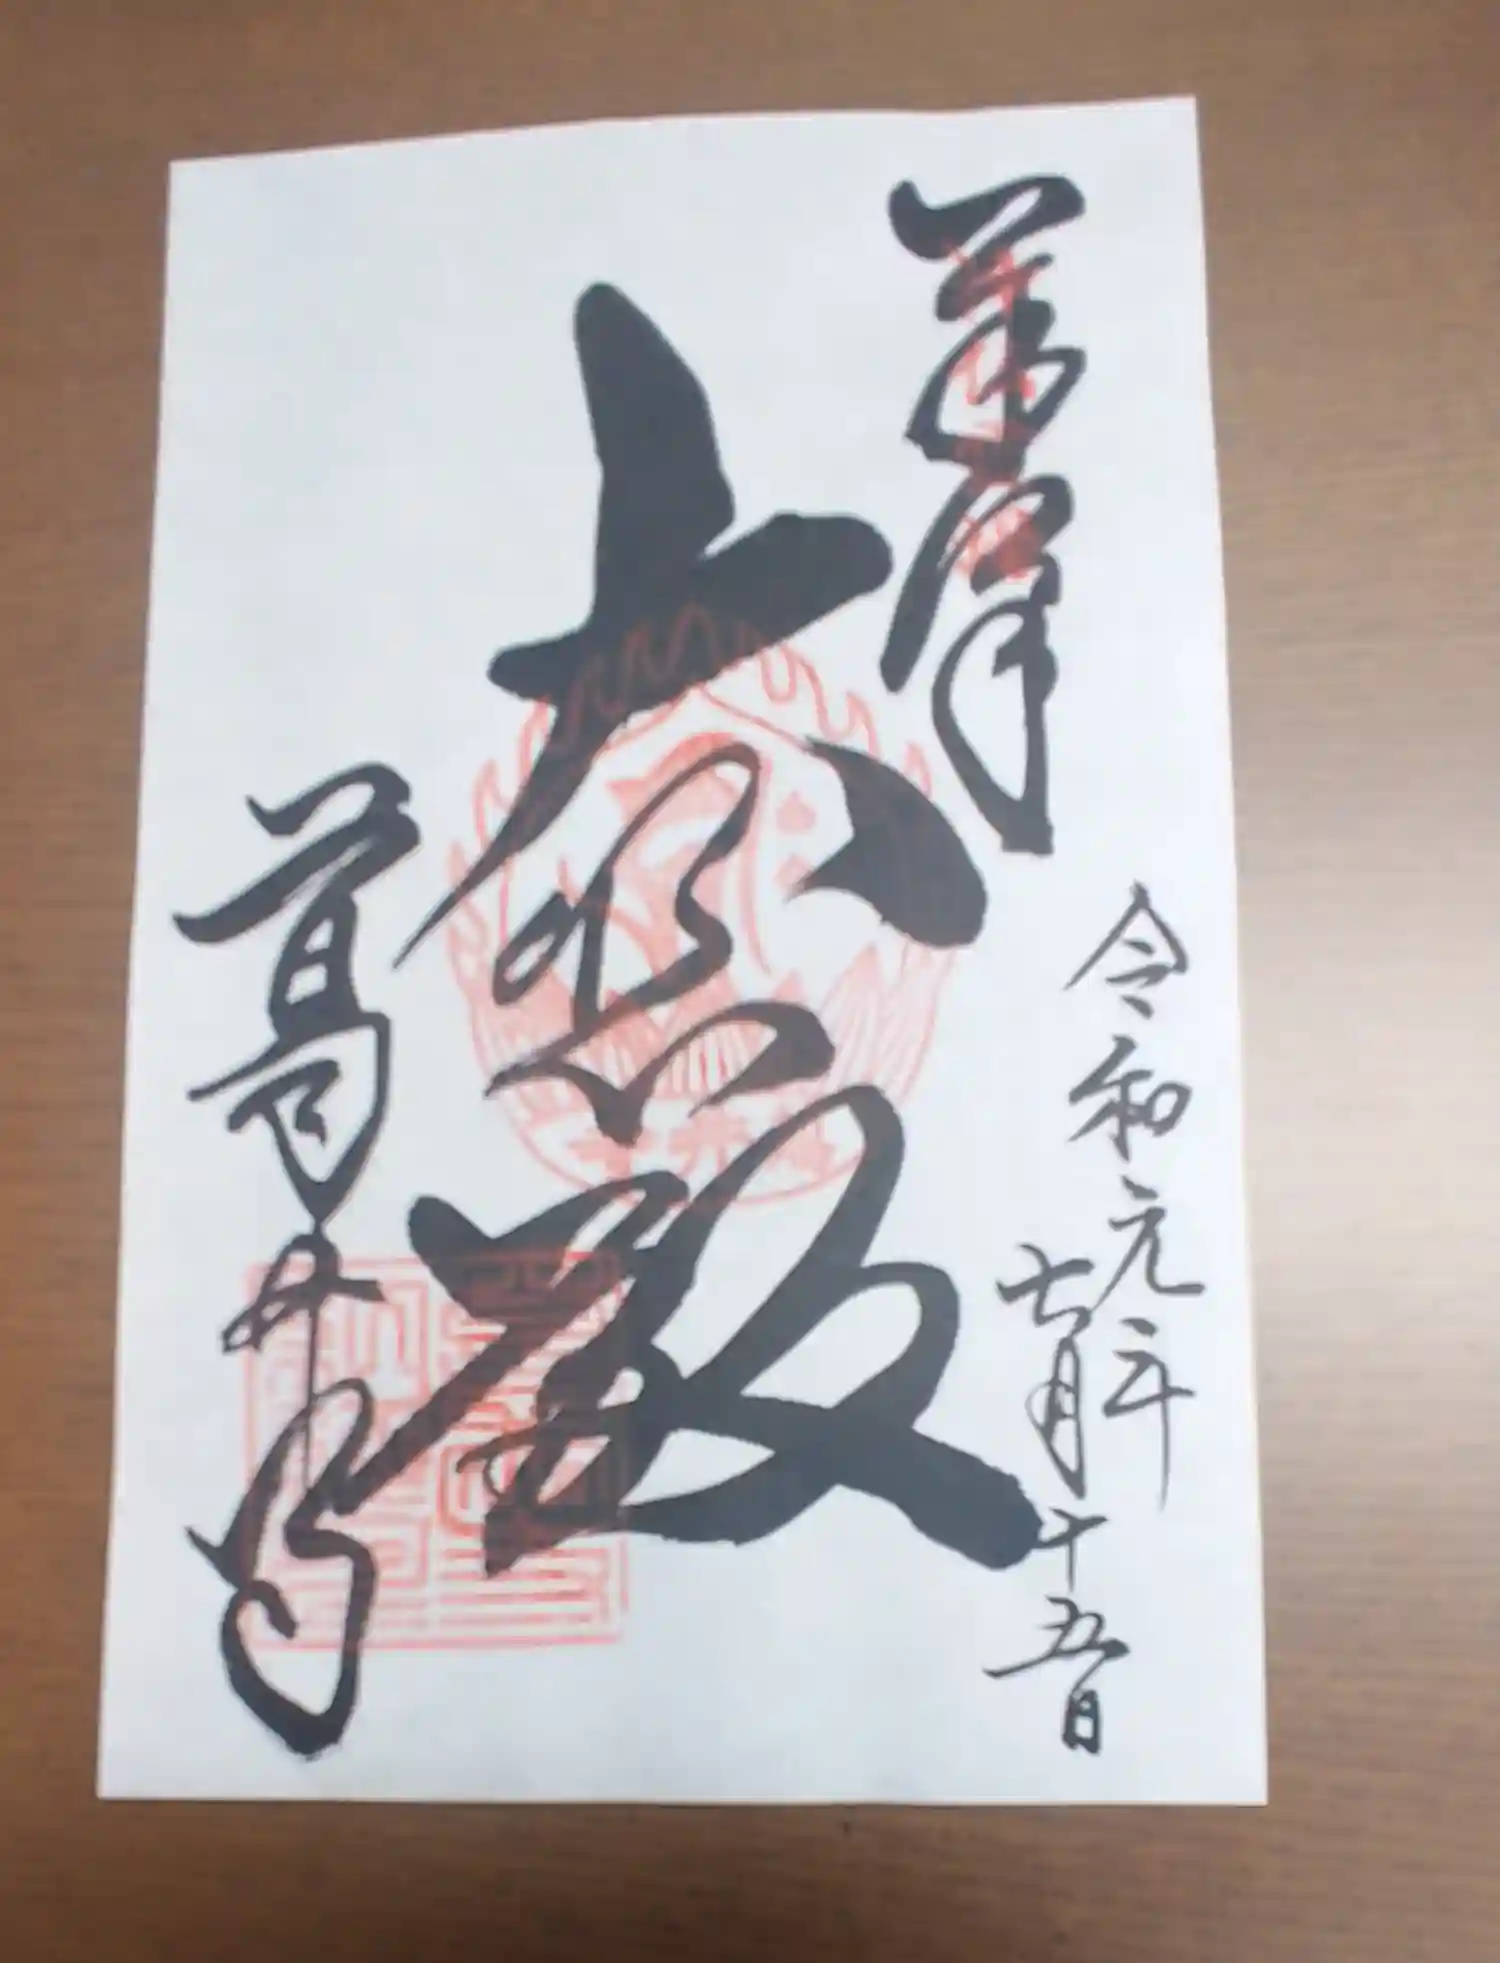 奉拝
令和元年
七月十五日
大悲殿
葛井寺